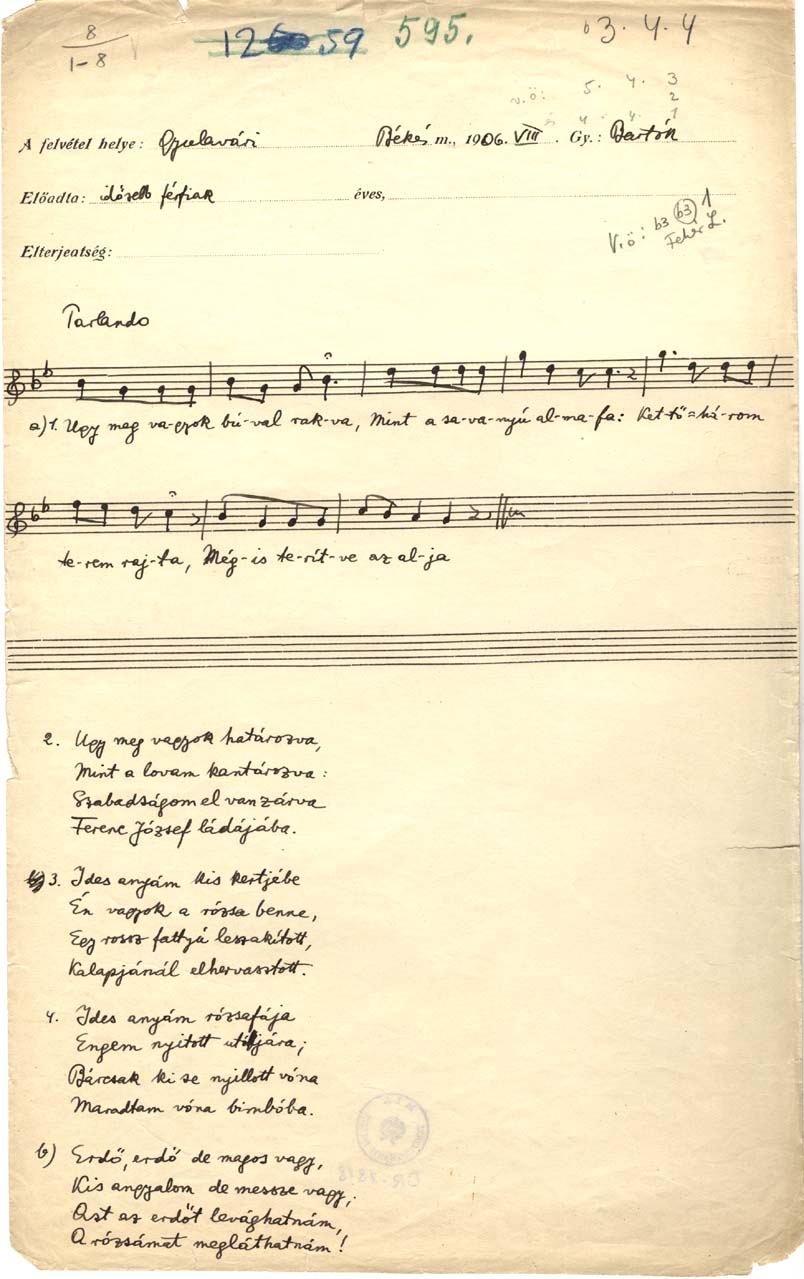 8
1-8
12 59 595. b3. 4. 4
v.ö: 5. 4. 3
2
és 4. 4. 1
A felvétel helye: Gyulavári Békés m., 1906. VIII. Gy.: Bartók
Előadta: idősebb férfiak éves,
V.ö: b3 (b3) 1
Fehér L.
Elterjeatség:
Parlando
a) 1. Ugy meg va-gyok bú-val rak-va, Mint a sa-va-nyú al-ma-fa: Ket-tő=há-rom
te-rem raj-ta, Még-is te-rít-ve az al-ja
2. Ugy meg vagyok határozva,
Mint a lovam kantározva:
Szabadságom el van zárva
Ferenc József ládájába.
3. Ides anyám kis kertjébe
Én vagyok a rózsa benne,
Egy rossz fattyú leszakított,
Kalapjánál elhervasztott.
4. Ides anyám rózsafája
Engem nyitott utójára;
Bárcsak ki se nyillott vóna
Maradtam vóna bimbóba.
b) Erdő, erdő de magos vagy,
Kis angyalom de messze vagy,
Azt az erdőt levághatnám,
A rózsámat megláthatnám!